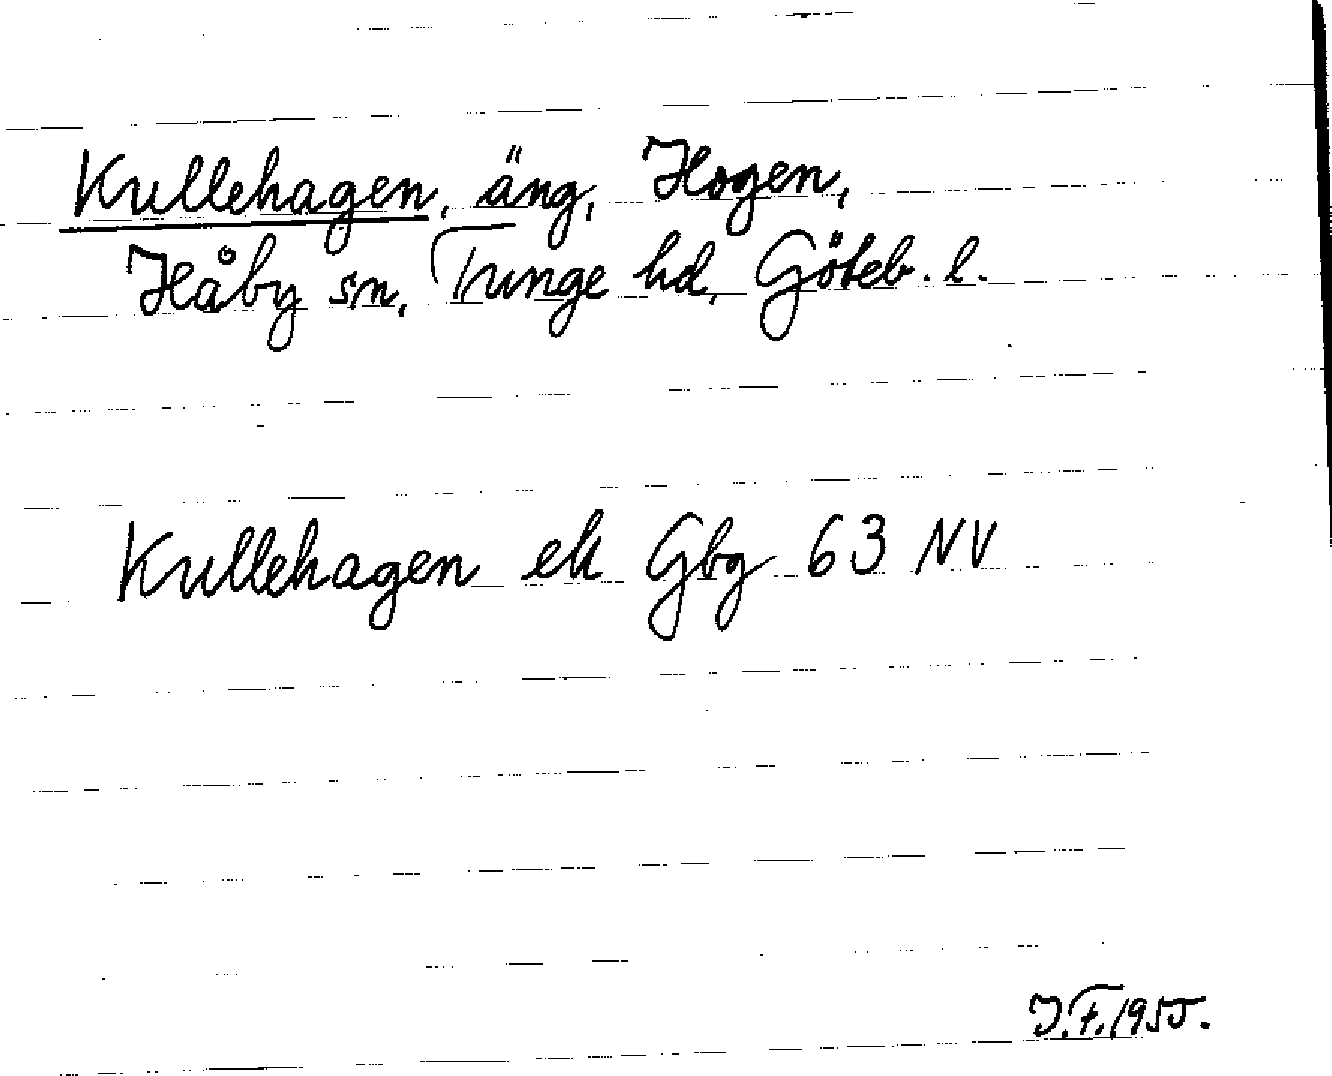 Kullehagen, äng, Hogen,
Håby sn, Tunge hd, Göteb. l.
Kullehagen ek Gbg 63 NV
J.F. 1955.